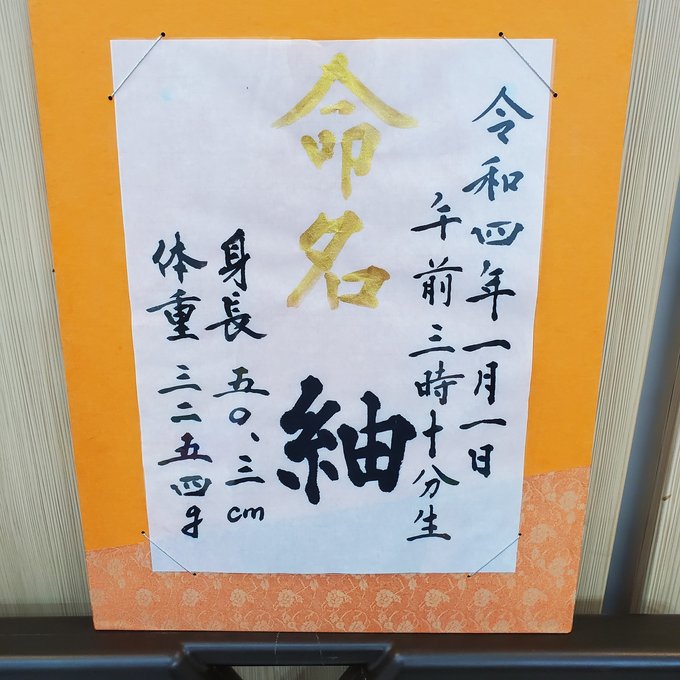 令和四年一月一日
午前三時十分生
命名
紬
身長 五〇、三cm
体重 三二五四g